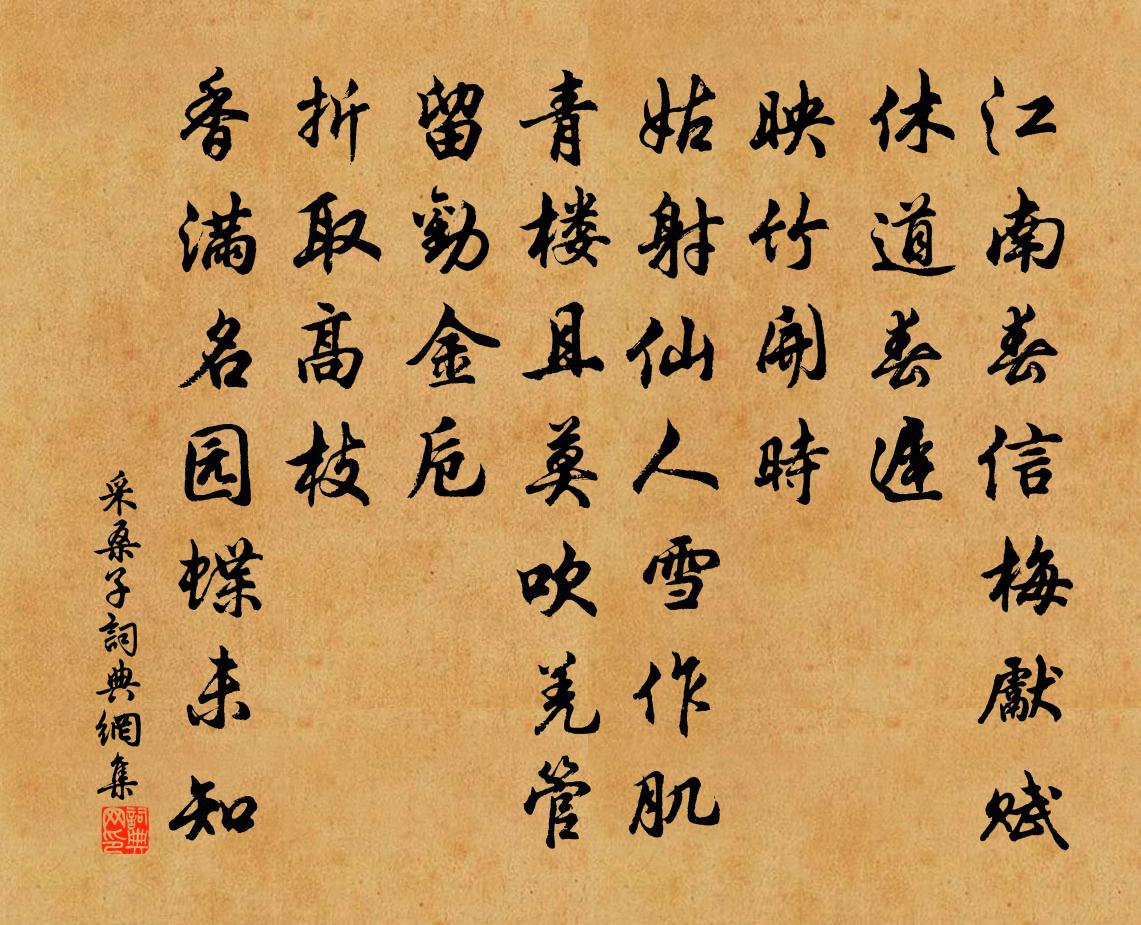 江南春信梅獻賦
休道春遲
映竹開時
姑射仙人雪作肌
青楼且莫吹羌管
留勸金卮
折取高枝
香满名园蝶未知
采桑子詞典網集
詞典网印